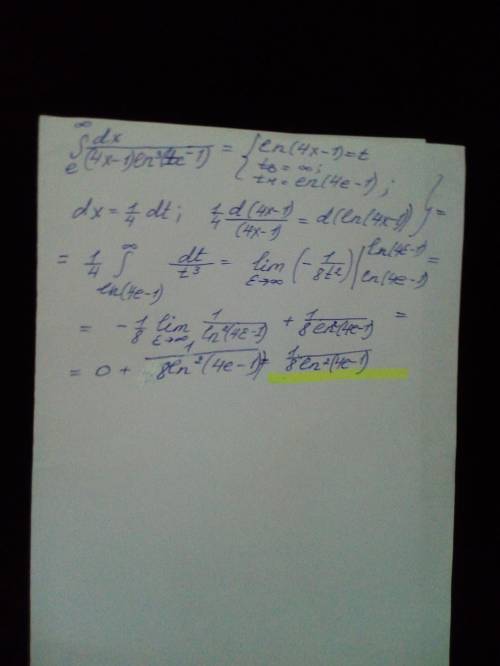 ∫_e^∞ dx/((4x-1)ln³(4x-1)) = { ln(4x-1)=t
t_в = ∞;
t_н = ln(4e-1);
dx = 1/4 dt; 1/4 d(4x-1)/(4x-1) = d(ln(4x-1)) } =
= 1/4 ∫_{ln(4e-1)}^∞ dt/t³ = lim_{ℰ→∞} (-1/(8t²)) |_{ln(4e-1)}^{ln(4ℰ-1)} =
= -1/8 lim_{ℰ→∞} 1/ln²(4ℰ-1) + 1/(8ln²(4e-1)) =
= 0 + 1/(8ln²(4e-1)) = 1/(8ln²(4e-1))